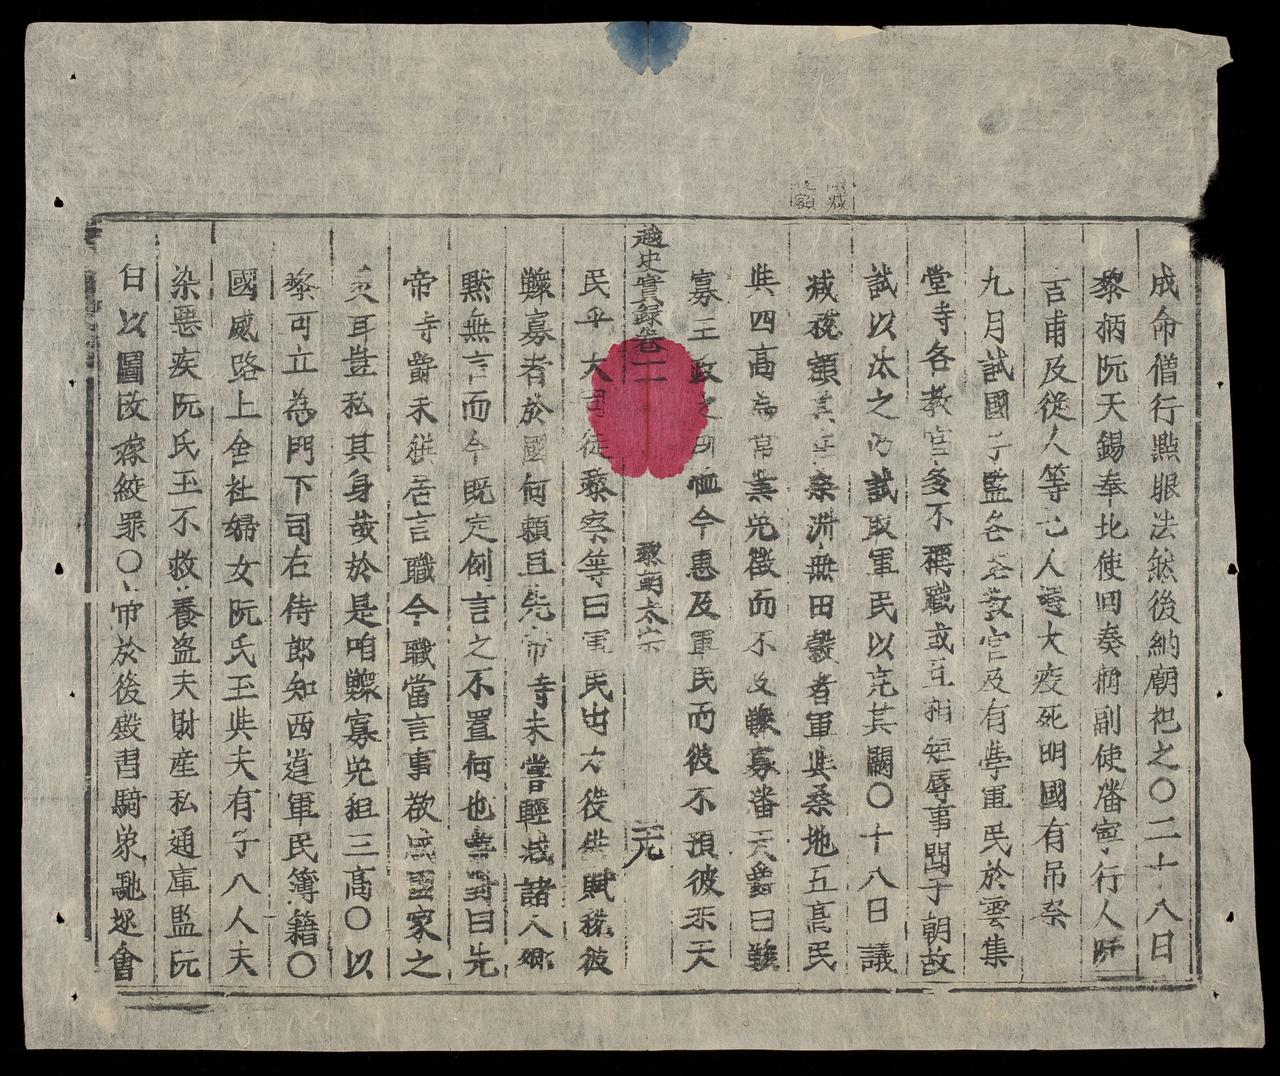 減
額
成命僧行點眼法然後納廟祀之〇二十八日
黎柄阮天錫奉北使回奏稱副使潘寧行人
吉甫及從人等七人遘大疫死明國有吊祭
九月試國子監各路教官及有學軍民於雲集
堂寺各教官多不稱職或互相短辱事聞于朝故
試以汰之乃試取軍民以充其闕〇十八日議
減稅額其無田穀者軍與桑地五高民
與四高為常業免徵而不及鰥寡潘天爵曰鰥
寡王政之所恤今惠及軍民而彼不預彼亦天
民乎大司徒黎察等曰軍民出力役供賦稅彼
鰥寡者於國何賴且先帝寺未嘗輕減諸人
默無言而今既定例言之不置何也等對曰先
帝寺爵未嘗居言職今職當言事欲國家之
耳豈私其身哉於是咱鰥寡免租三高〇以
黎可立為門下司右侍郎知西道軍民簿籍〇
國威路上舍社婦女阮氏玉與夫有子八人夫
染惡疾阮氏玉不救養盜夫財產私通庫監阮
白以圖改嫁絞罪〇帝於後殿習騎象馳逐會
越史實錄卷二
黎朝太宗
元